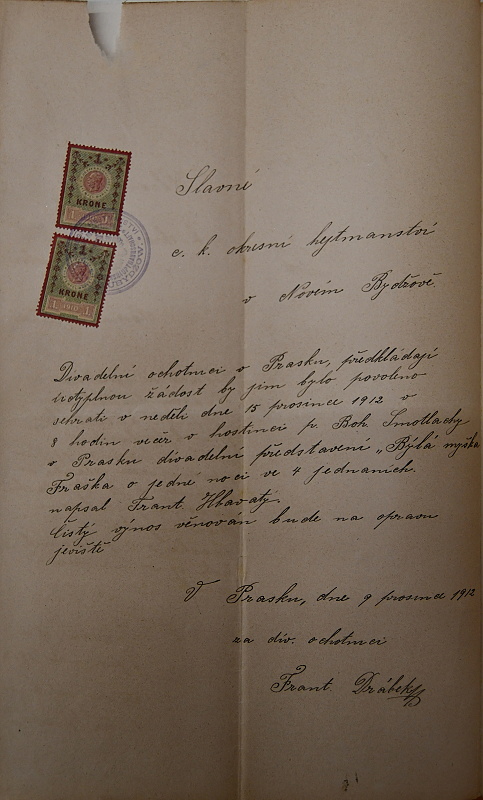 1
KRONE
1 1910 1
1
KRONE
1 1910 1
Slavné
c. k. okresní hejtmanství
v Novém Bydžově.
Divadelní ochotníci v Prasku, předkládají
uctyplnou žádost by jim bylo povoleno
sehrati v neděli dne 15 prosince 1912 v
8 hodin večer v hostinci p. Boh. Smotlachy
v Prasku divadelní představení „Býlá myška
Fraška o jedné noci ve 4 jednaních.
napsal Frant. Hlavatý.
Čistý výnos věnován bude na opravu
jeviště
V Prasku, dne 9 prosince 1912
za div. ochotníci
Frant. Drábek